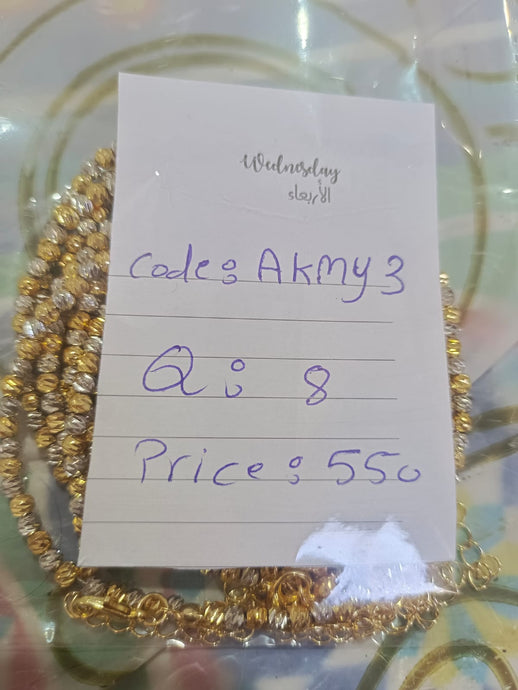 Wednesday
الأربعاء
Code: AKMY3
Q: 8
Price: 550